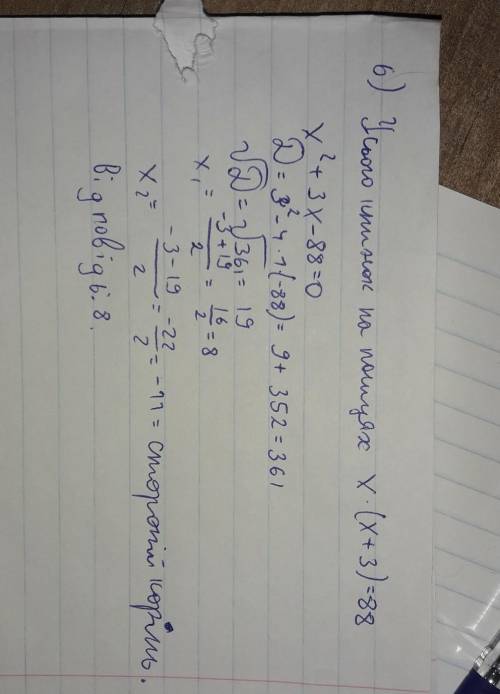 6) Усього книжок на полицях x·(x+3)=88
x²+3x-88=0
D=3²-4·1(-88)=9+352=361
√D=√361=19
x₁= -3+19/2 = 16/2 =8
x₂= -3-19/2 = -22/2 = -11= сторонній корінь.
Відповідь: 8.